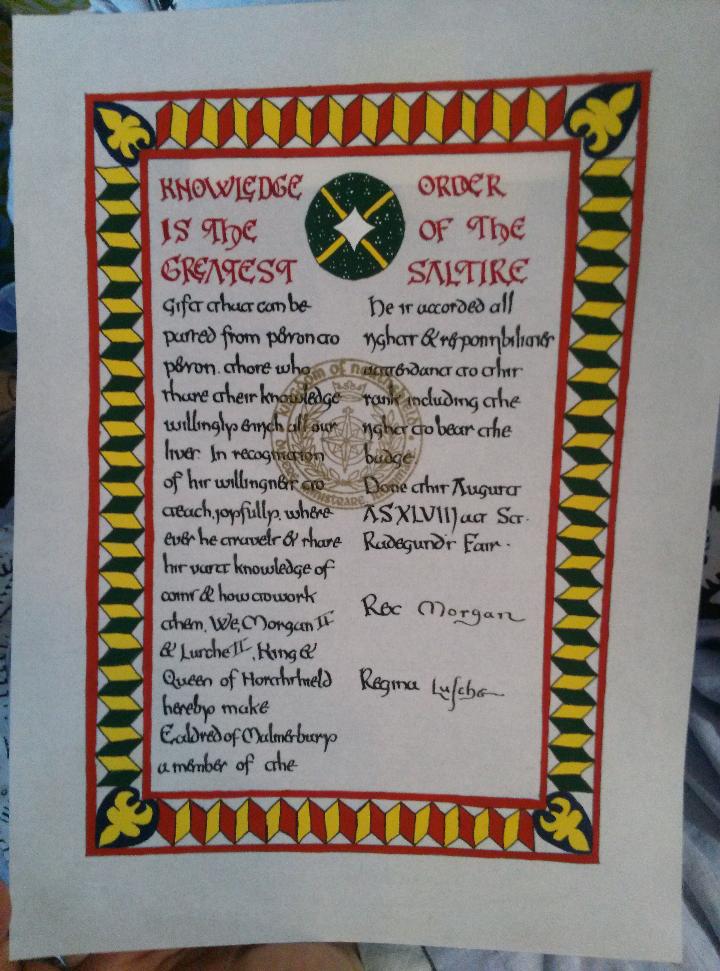 KNOWLEDGE
IS The
GREATEST
Gift that can be
passed from person to
person. those who
share their knowledge
willingly enrich all our
lives. In recognition
of his willingness to
teach, joyfully, where
ever he travels & share
his vast knowledge of
coins & how to work
them, We, Morgan II
& Lutche II, King &
Queen of Northshield
hereby make
Ealdred of Malmesbury
a member of the
ORDER
OF The
SALTIRE
He is accorded all
rights & responsibilities
attendant to this
rank including the
right to bear the
badge
Done this August
AS XLVIII at St.
Radegund's Fair.
Rex Morgan
Regina
Kingdom of Northshield